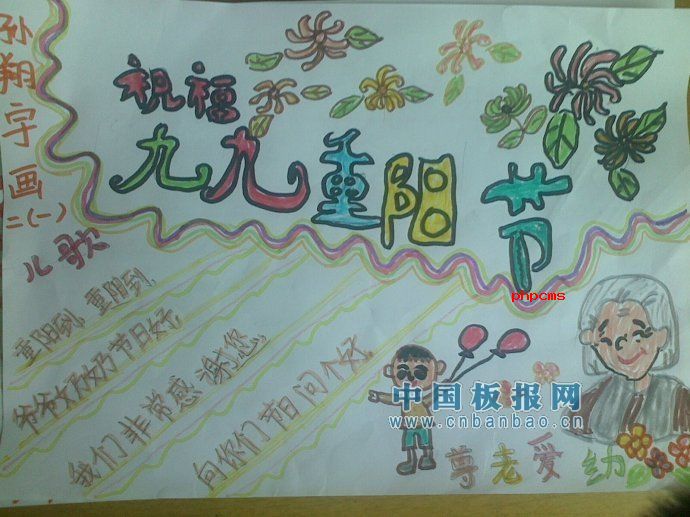 孙翔宇画
二(一)
祝福
九九重阳节
儿歌
重阳到,重阳到
爷爷奶奶节日好
我们非常感谢您
向你们节日问个好
尊老爱幼
phpcms
中国板报网
www.cnbanbao.cn